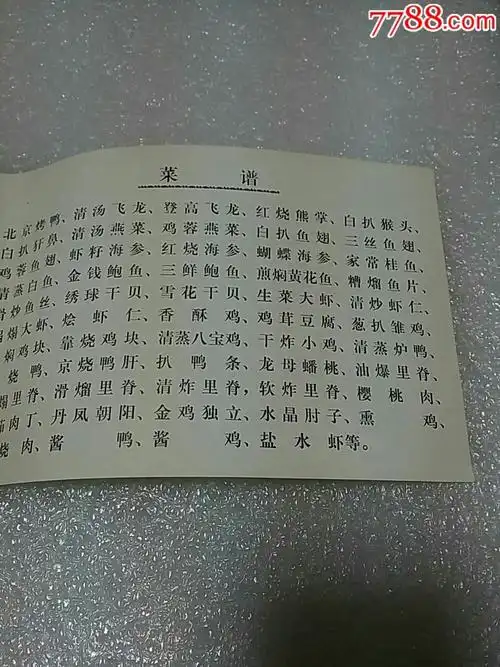 7788.com
菜 谱
北京烤鸭、清汤飞龙、登高飞龙、红烧熊掌、白扒猴头、
白扒犴鼻、清汤燕菜、鸡蓉燕菜、白扒鱼翅、三丝鱼翅、
鸡蓉鱼翅、虾籽海参、红烧海参、蝴蝶海参、家常桂鱼、
清蒸白鱼、金钱鲍鱼、三鲜鲍鱼、煎焖黄花鱼、糟熘鱼片、
滑炒鱼丝、绣球干贝、雪花干贝、生菜大虾、清炒虾仁、
大虾、烩虾仁、香酥鸡、鸡茸豆腐、葱扒雏鸡、
焖鸡块、靠烧鸡块、清蒸八宝鸡、干炸小鸡、清蒸炉鸭、
烧鸭、京烧鸭肝、扒鸭条、龙母蟠桃、油爆里脊、
熘里脊、滑熘里脊、清炸里脊，软炸里脊、樱桃肉、
肉丁、丹凤朝阳、金鸡独立、水晶肘子、熏鸡、
烧肉、酱鸭、酱鸡、盐水虾等。